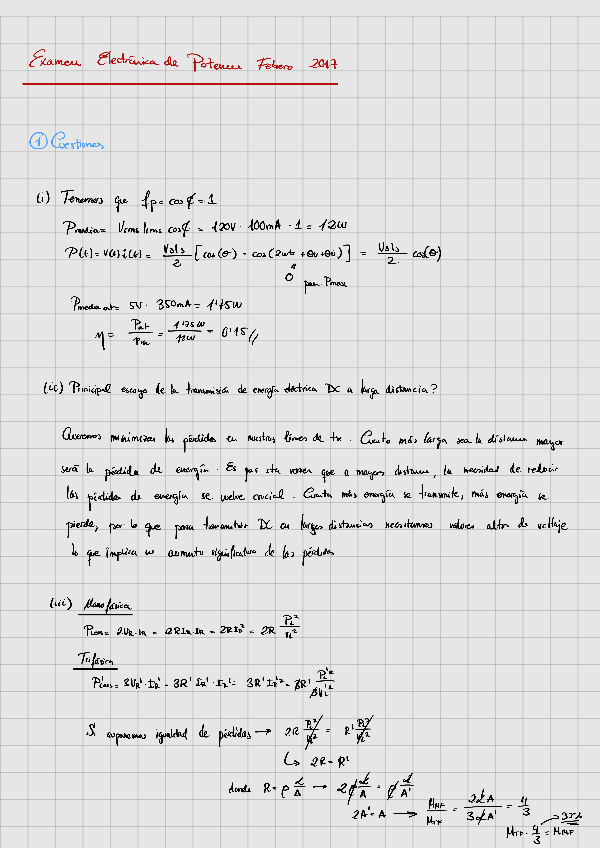 Examen Electrónica de Potencia Febrero 2017
① Cuestiones
(i) Tenemos que fp = cos φ = 1
Pmedia = Vrms Irms cos φ = 120V · 100mA · 1 = 12W
P(t) = V(t) i(t) = VsIs/2 [cos(θ) - cos(2wt + θv + θi)] = VsIs/2 cos(θ)
0 para Pmax
Pmedia out = 5V · 350mA = 1'75W
η = Pout/Pin = 1'75W/12W = 0'15 //
(ii) Principal escoyo de la transmisión de energía eléctrica DC a larga distancia?
Queremos minimizar las pérdidas en nuestras líneas de tx. Cuanto más larga sea la distancia mayor
será la pérdida de energía. Es por esta razón que a mayores distancias, la necesidad de reducir
las pérdidas de energía se vuelve crucial. Cuanta más energía se transmite, más energía se
pierde, por lo que para transmitir DC en largas distancias necesitamos valores altos de voltaje
lo que implica un aumento significativo de las pérdidas
(iii) Monofásica
PLoss = 2VR · IR = 2R IR · IR = 2R IR² = 2R PL²/VL²
Trifásica
P'Loss = 3VR' · IR' = 3R' IR' · IR' = 3R' IR'² = 3R' PL'²/3VL'²
Si suponemos igualdad de pérdidas → 2R PL²/VL² = R' PL²/VL²
↳ 2R = R'
donde R = ρ L/A → 2ρ L/A = ρ L/A'
2A' = A → MMF/MTF = 2LA/3LA' = 4/3
MTF · 4/3 = MMF